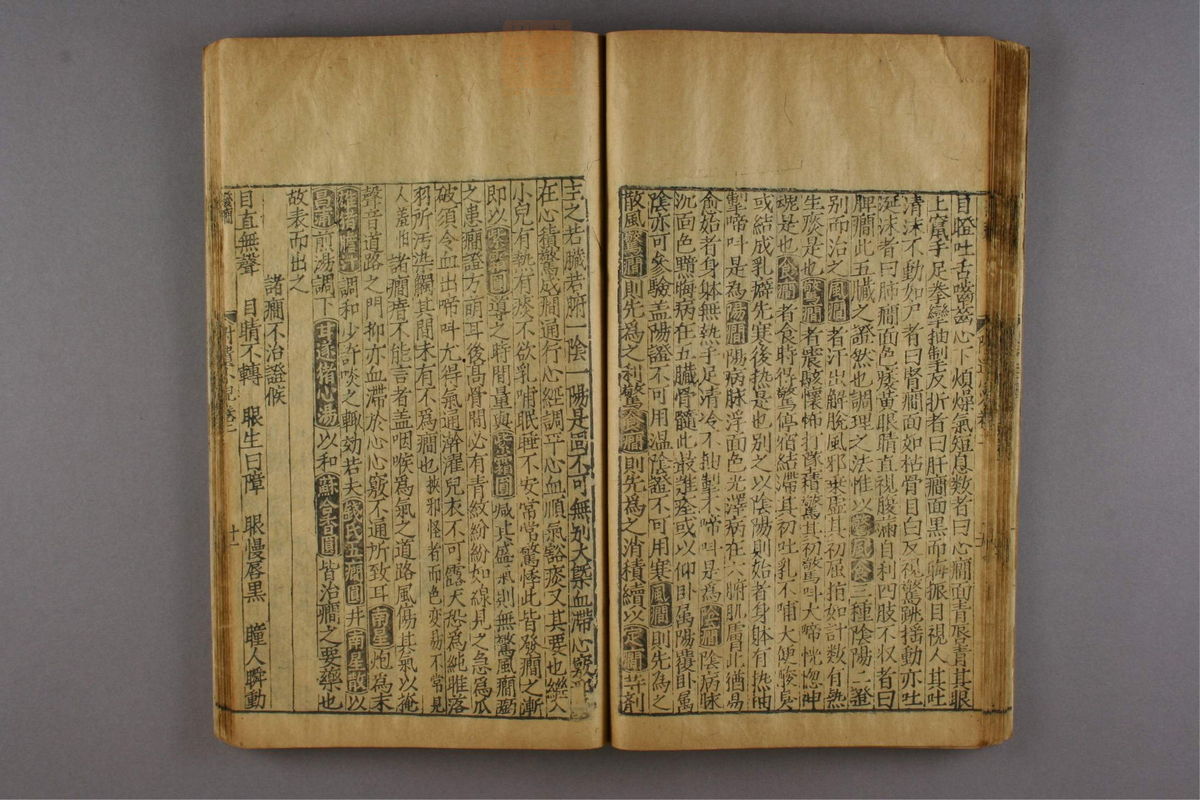 目瞪吐舌嚙齒心下煩燥氣短息數者曰心癇面青唇青其眼
上竄手足拳攣抽掣反折者曰肝癇面黑而晦振目視人其吐
清沫不動如尸者曰腎癇面如枯骨目白反視驚跳搖動亦吐
涎沫者曰肺癇面色痿黃眼睛直視腹滿自利四肢不收者曰
脾癇此五臟之證然也調理之法惟以驚風食三種陰陽二證
別而治之風癇者汗出解脫風邪乘虛其初屈指如計數有熱
生痰是也驚癇者震駭懷怖打尊積驚其初驚叫大啼恍惚神
魂是也食癇者食時得驚停宿結滯其初吐乳不哺大便酸臭
或結成乳癖先寒後熱是也別之以陰陽則始者身躰有熱抽
掣啼叫是為陽癇陽病脉浮面色光澤病在六腑肌膚此猶易
愈始者身躰無熱手足清冷不抽掣不啼叫是為陰癇陰病脉
沉面色黯晦病在五臟骨髓此最難痊或以仰卧屬陽覆卧屬
陰亦可參驗盖陽證不可用温陰證不可用寒風癇則先為之
散風驚癇則先為之利驚食癇則先為之消積續以定癇等劑
主之若臟若腑一陰一陽是固不可無别大槩血滯心竅
在心積驚成癇通行心經調平心血順氣豁痰又其要也
小兒有熱有痰不欲乳哺眠睡不安常常驚悸此皆發癇之漸
即以紫霜圓導之時間量與紫霜圓減其盛氣則無驚風癇
之患癇證方萌耳後髙骨間必有青紋紛紛如線見之急為瓜
破須令血出啼叫尤得氣通澣濯兒衣不可露天恐為純雌落
羽所汚㳩觸其間未有不為癇也挾邪怪者面色變易不常見
人羞怕諸癇瘖不能言者盖咽喉為氣之道路風傷其氣以掩
聲音道路之門抑亦血滯於心心竅不通所致耳南星炮為末
調和少許啖之輙効若夫錢氏五癇圓并南星散以
菖蒲煎湯調下甘遂猪心湯以和蘇合香圓皆治癇之要藥也
故表而出之
諸癇不治證候
目直無聲 目睛不轉 眼生白障 眼慢唇黑 瞳人瞬動
十一